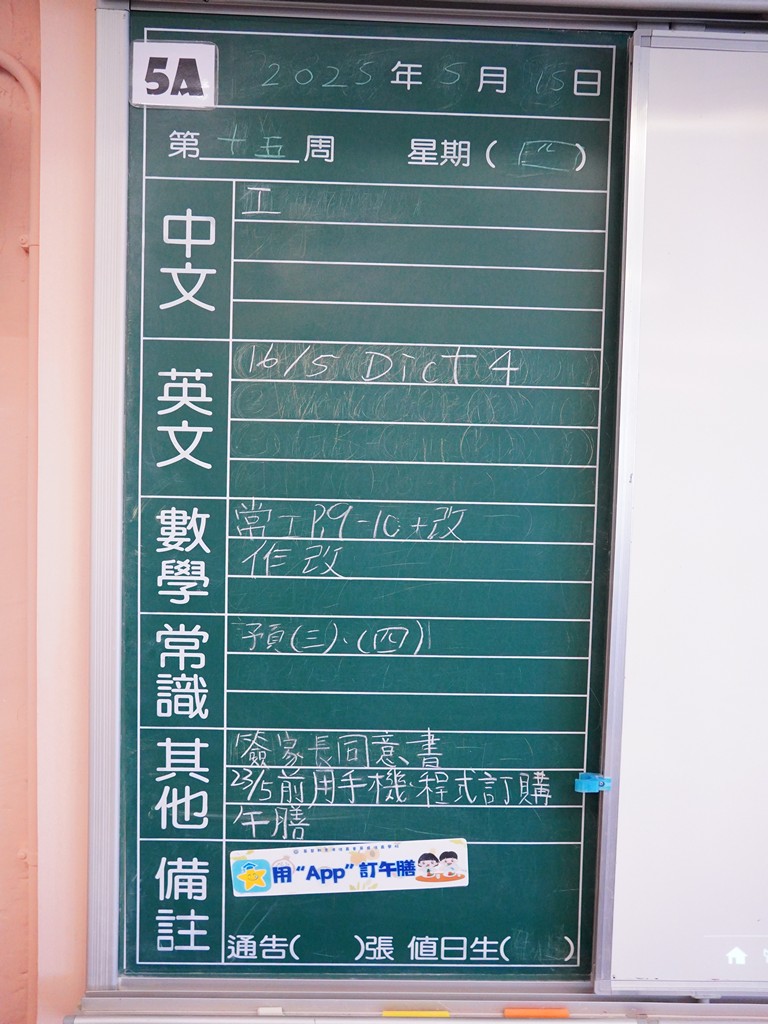 5A
2025年5月15日
第十五周 星期(四)
中文
工
英文
16/5 Dict 4
數學
當工P.9-10+改
作改
常識
預(三)、(四)
其他
簽家長同意書
23/5前用手機程式訂購
午膳
備註
用“App”訂午膳
通告( )張 值日生( )